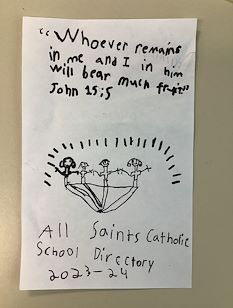 “Whoever remains
in me and I in him
will bear much fruit”
John 15:5
All Saints Catholic
School Directory
2023-24